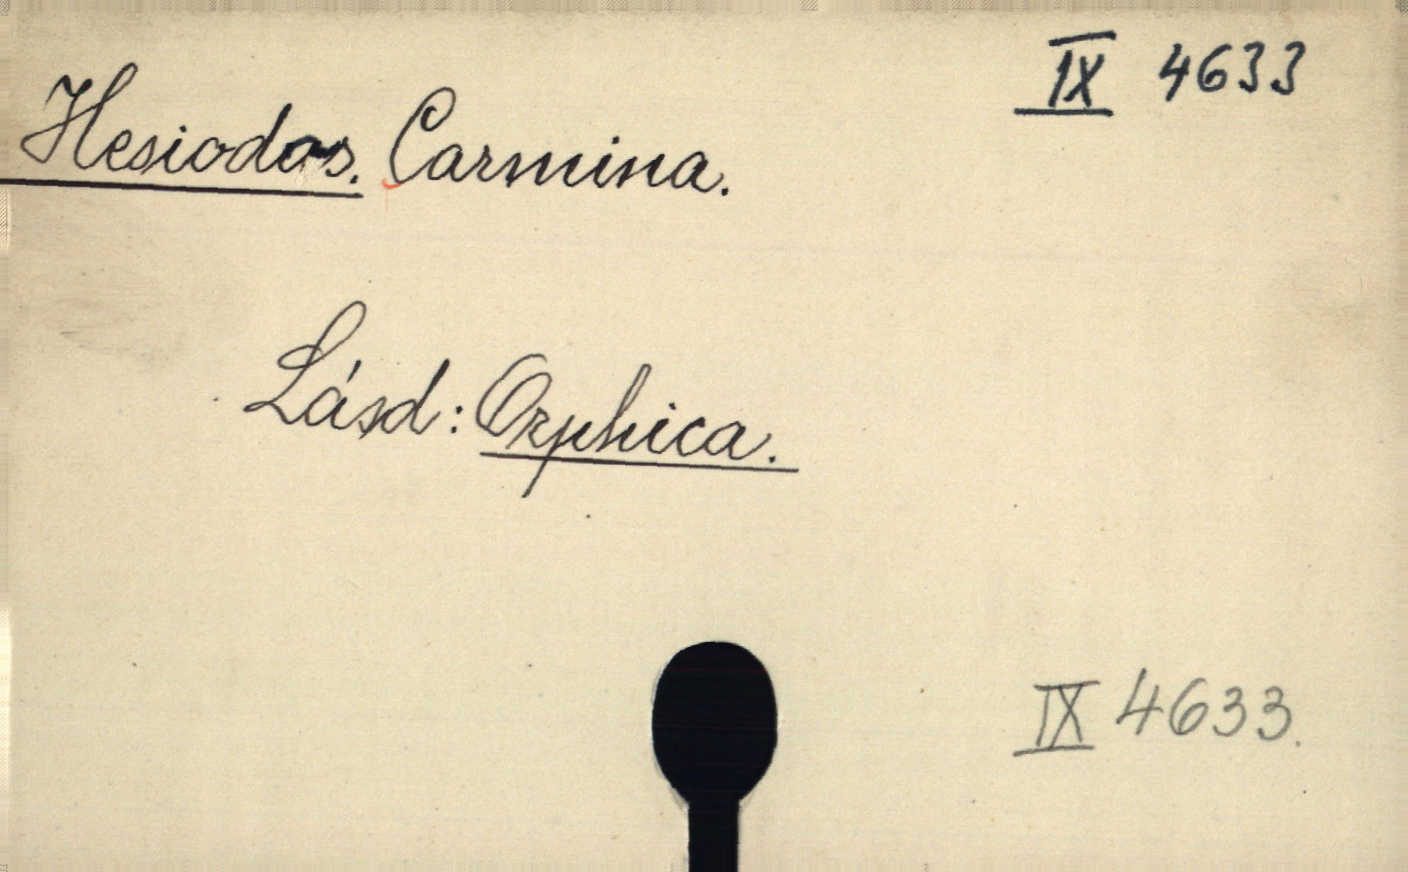 IX 4633
Hesiodos. Carmina.
Lásd: Orphica.
IX 4633.